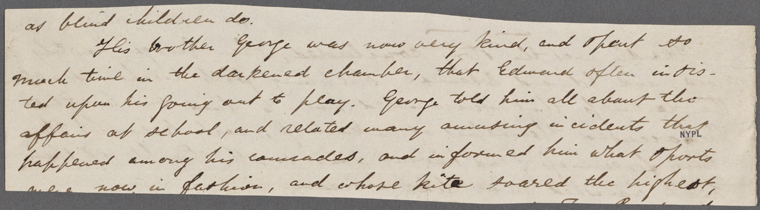 as blind children do.
His brother George was now very kind, and spent so
much time in the darkened chamber, that Edward often insis-
ted upon his going out to play. George told him all about the
affairs at school, and related many amusing incidents that
NYPL
happened among his comrades, and informed him what sports
were now in fashion, and whose kite soared the highest,